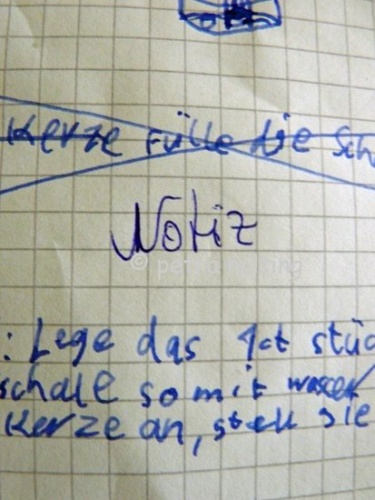 Kerze Fülle die Sch
Notiz
: Lege das 1ct stüc
schale so mit wasser
Kerze an, stell sie